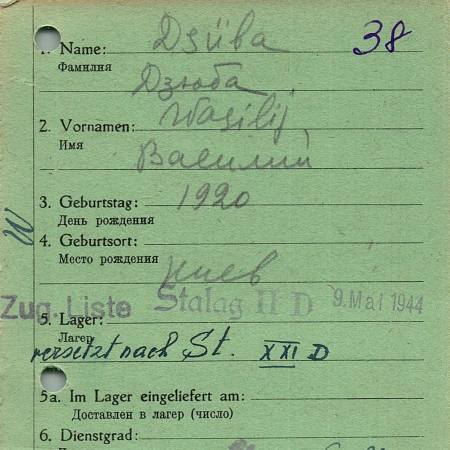 38
1. Name: Дзіива
Фамилия Дзюба
2. Vornamen: Wasilij,
Имя Василий
3. Geburtstag: 1920
День рождения
4. Geburtsort:
Место рождения Киев
Zug. Liste Stalag II D 9. Mai 1944
5. Lager:
Лагерь versetzt nach St. XXI D
5a. Im Lager eingeliefert am:
Доставлен в лагерь (число)
6. Dienstgrad: